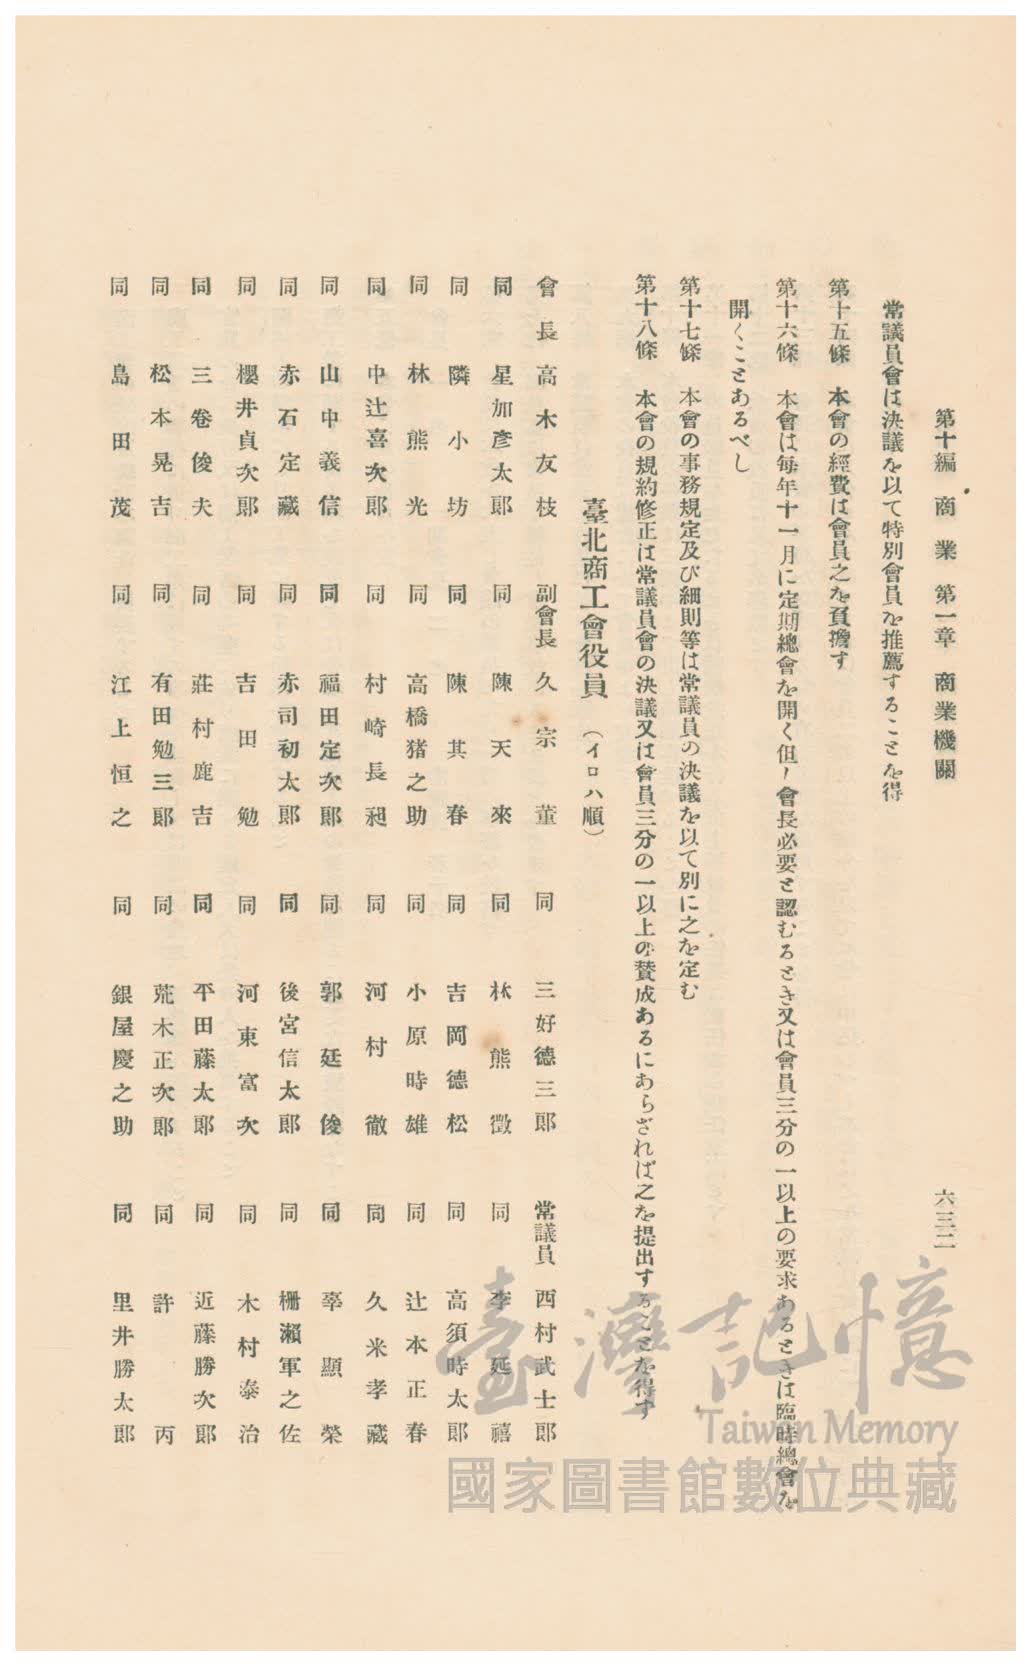 第十編　商業　第一章　商業機關　六三二
常議員會は決議を以て特別會員を推薦することを得
第十五條　本會の經費は會員之を負擔す
第十六條　本會は毎年十一月に定期總會を開く但し會長必要と認むるとき又は會員三分の一以上の要求あるときは臨時總會を
開くことあるべし
第十七條　本會の事務規定及び細則等は常議員の決議を以て別に之を定む
第十八條　本會の規約修正は常議員會の決議又は會員三分の一以上の賛成あるにあらざれば之を提出することを得す
臺北商工會役員（イロハ順）
會長　高木友枝　副會長　久宗董　同　三好德三郎　常議員　西村武士郎
同　星加彥太郎　同　陳天來　同　林熊徵　同　李延禧
同　隣小坊　同　陳其春　同　吉岡德松　同　高須時太郎
同　林熊光　同　高橋猪之助　同　小原時雄　同　辻本正春
同　中辻喜次郎　同　村崎長昶　同　河村徹　同　久米孝藏
同　山中義信　同　福田定次郎　同　郭廷俊　同　辜顯榮
同　赤石定藏　同　赤司初太郎　同　後宮信太郎　同　柵瀨軍之佐
同　櫻井貞次郎　同　吉田勉　同　河東富次　同　木村泰治
同　三卷俊夫　同　莊村鹿吉　同　平田藤太郎　同　近藤勝次郎
同　松本晃吉　同　有田勉三郎　同　荒木正次郎　同　許丙
同　島田茂　同　江上恒之　同　銀屋慶之助　同　里井勝太郎
臺灣記憶
Taiwan Memory
國家圖書館數位典藏